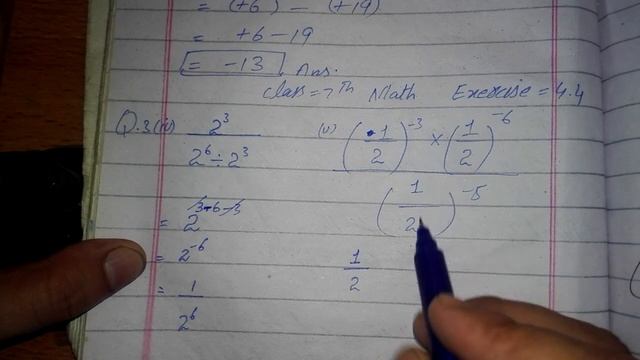 = (+6) - (+19)
= +6 - 19
= -13 Ans.
Class = 7th Math Exercise = 4.4
Q.3 (iv) 2^3 / 2^6 ÷ 2^3
= 2^3-6-3
= 2^-6
= 1 / 2^6
(v) (1/2)^-3 × (1/2)^-6 / (1/2)^-5
1/2